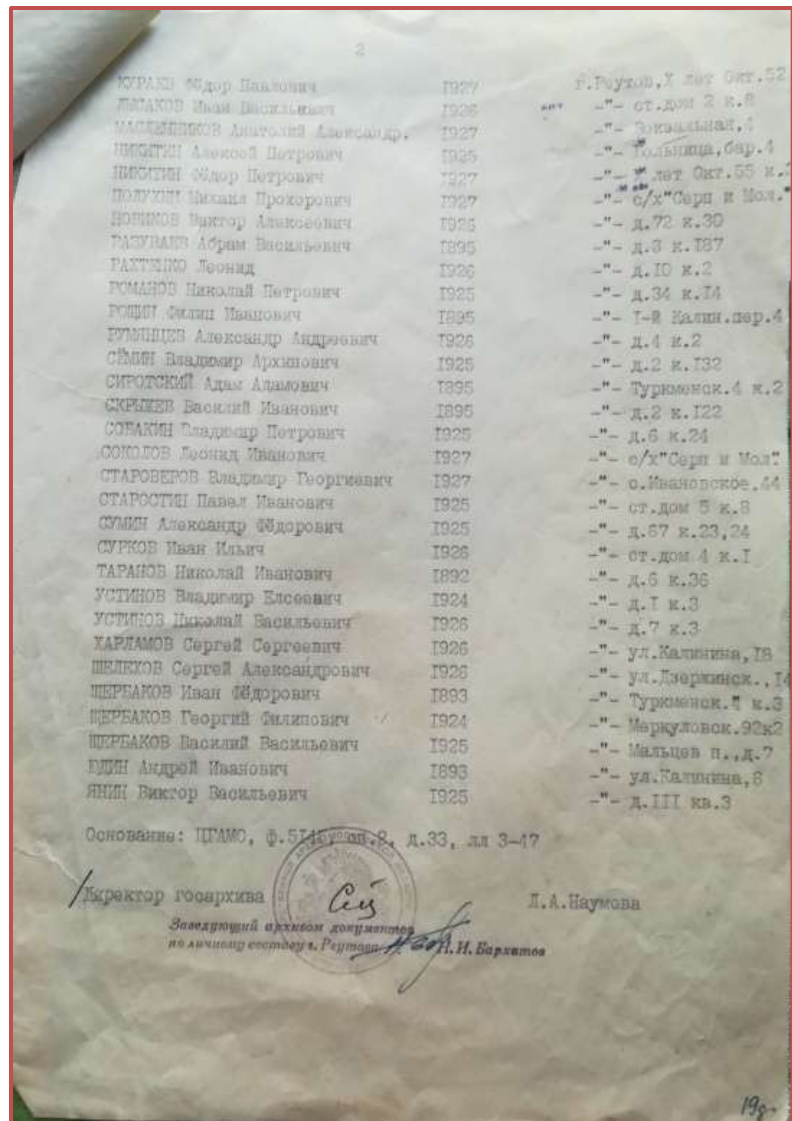 2
КУРАЕВ Фёдор Павлович 1927 г.Реутов,X лет Окт.52
ЛЫСАКОВ Иван Васильевич 1926 -"- ст.дом 2 к.8
МАСЛЕННИКОВ Анатолий Александр. 1927 -"- Вокзальная,4
НИКИТИН Алексей Петрович 1925 -"- Больница,бар.4
НИКИТИН Фёдор Петрович 1927 -"- X лет Окт.55 к.
ПОЛУХИН Михаил Прохорович 1927 -"- с/х"Серп и Мол."
НОВИКОВ Виктор Алексеевич 1926 -"- д.72 к.30
РАЗУВАЕВ Абрам Васильевич 1895 -"- д.3 к.I87
РАХТЕНКО Леонид 1926 -"- д.IO к.2
РОМАНОВ Николай Петрович 1925 -"- д.34 к.I4
РОЩИН Филип Иванович I895 -"- I-й Калин.пер.4
РУМЯНЦЕВ Александр Андреевич I926 -"- д.4 к.2
СЁМИН Владимир Архипович I925 -"- д.2 к.I32
СИРОТСКИЙ Адам Адамович I895 -"- Туркменск.4 к.2
СКРЫЖЕВ Василий Иванович I895 -"- д.2 к.I22
СОБАКИН Владимир Петрович I925 -"- д.6 к.24
СОКОЛОВ Леонид Иванович I927 -"- с/х"Серп и Мол"
СТАРОВЕРОВ Владимир Георгиевич I927 -"- с.Ивановское,44
СТАРОСТИН Павел Иванович I925 -"- ст.дом 5 к.8
СУМИН Александр Фёдорович I925 -"- д.67 к.23,24
СУРКОВ Иван Ильич I926 -"- ст.дом 4 к.I
ТАРАНОВ Николай Иванович I892 -"- д.6 к.36
УСТИНОВ Владимир Елсеевич I924 -"- д.I к.3
УСТИНОВ Николай Васильевич I926 -"- д.7 к.3
ХАРЛАМОВ Сергей Сергеевич I926 -"- ул.Калинина,I8
ШЕЛЕХОВ Сергей Александрович I926 -"- ул.Дзержинск.,I4
ЩЕРБАКОВ Иван Фёдорович I893 -"- Туркменск.4 к.3
ЩЕРБАКОВ Георгий Филипович I924 -"- Меркуловск.92к2
ЩЕРБАКОВ Василий Васильевич I925 -"- Мальцев п.,д.7
ЮДИН Андрей Иванович I893 -"- ул.Калинина,8
ЯНИН Виктор Васильевич I925 -"- д.III кв.3
Основание: ЦГАМО, ф.5I45, оп.2, д.33, лл 3-47
Директор госархива Л.А.Наумова
Заведующий архивом документов
по личному составу г. Реутова Н.И.Бархатов
19